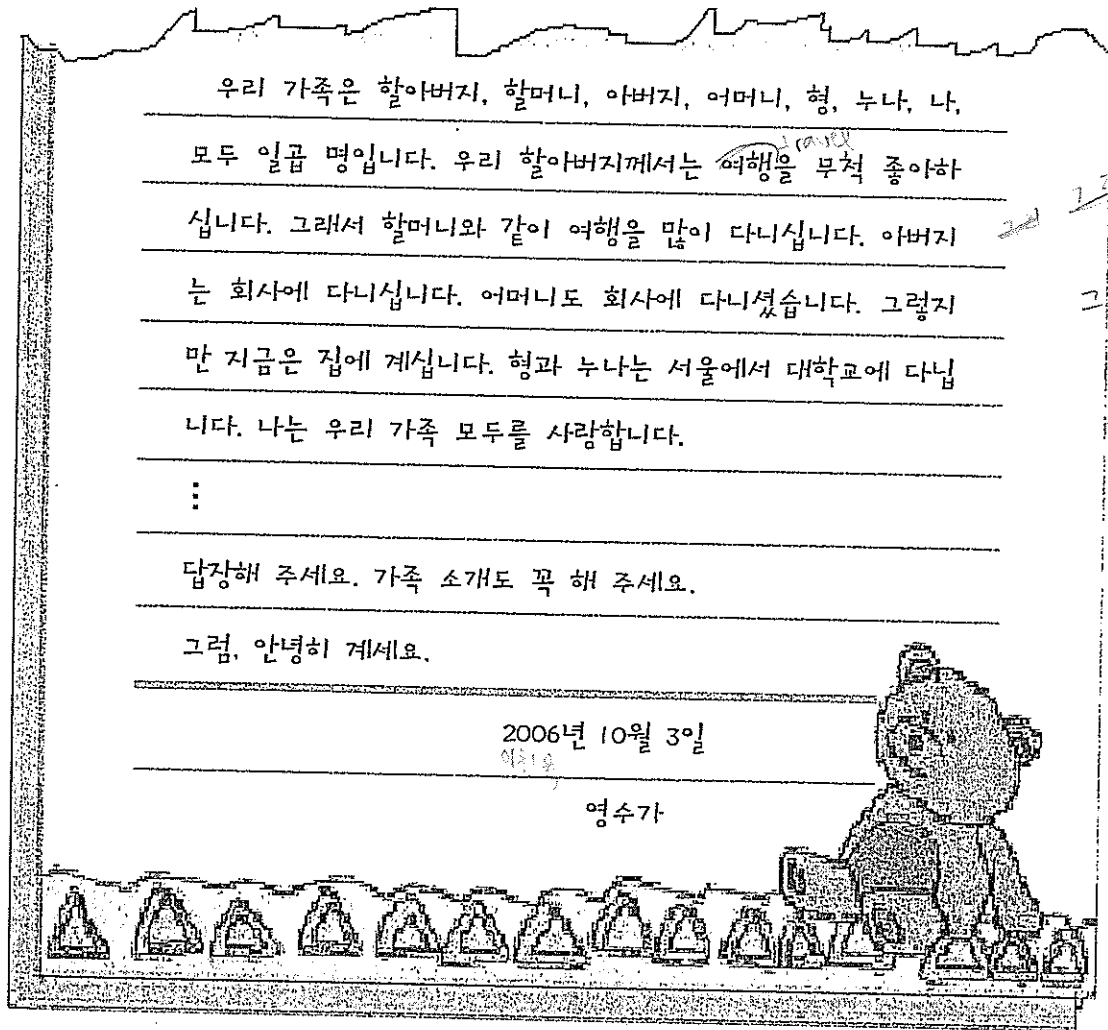 우리 가족은 할아버지, 할머니, 아버지, 어머니, 형, 누나, 나,
travel
모두 일곱 명입니다. 우리 할아버지께서는 여행을 무척 좋아하
십니다. 그래서 할머니와 같이 여행을 많이 다니십니다. 아버지
는 회사에 다니십니다. 어머니도 회사에 다니셨습니다. 그렇지
만 지금은 집에 계십니다. 형과 누나는 서울에서 대학교에 다닙
니다. 나는 우리 가족 모두를 사랑합니다.
⋮
답장해 주세요. 가족 소개도 꼭 해 주세요.
그럼, 안녕히 계세요.
2006년 10월 3일
영수가